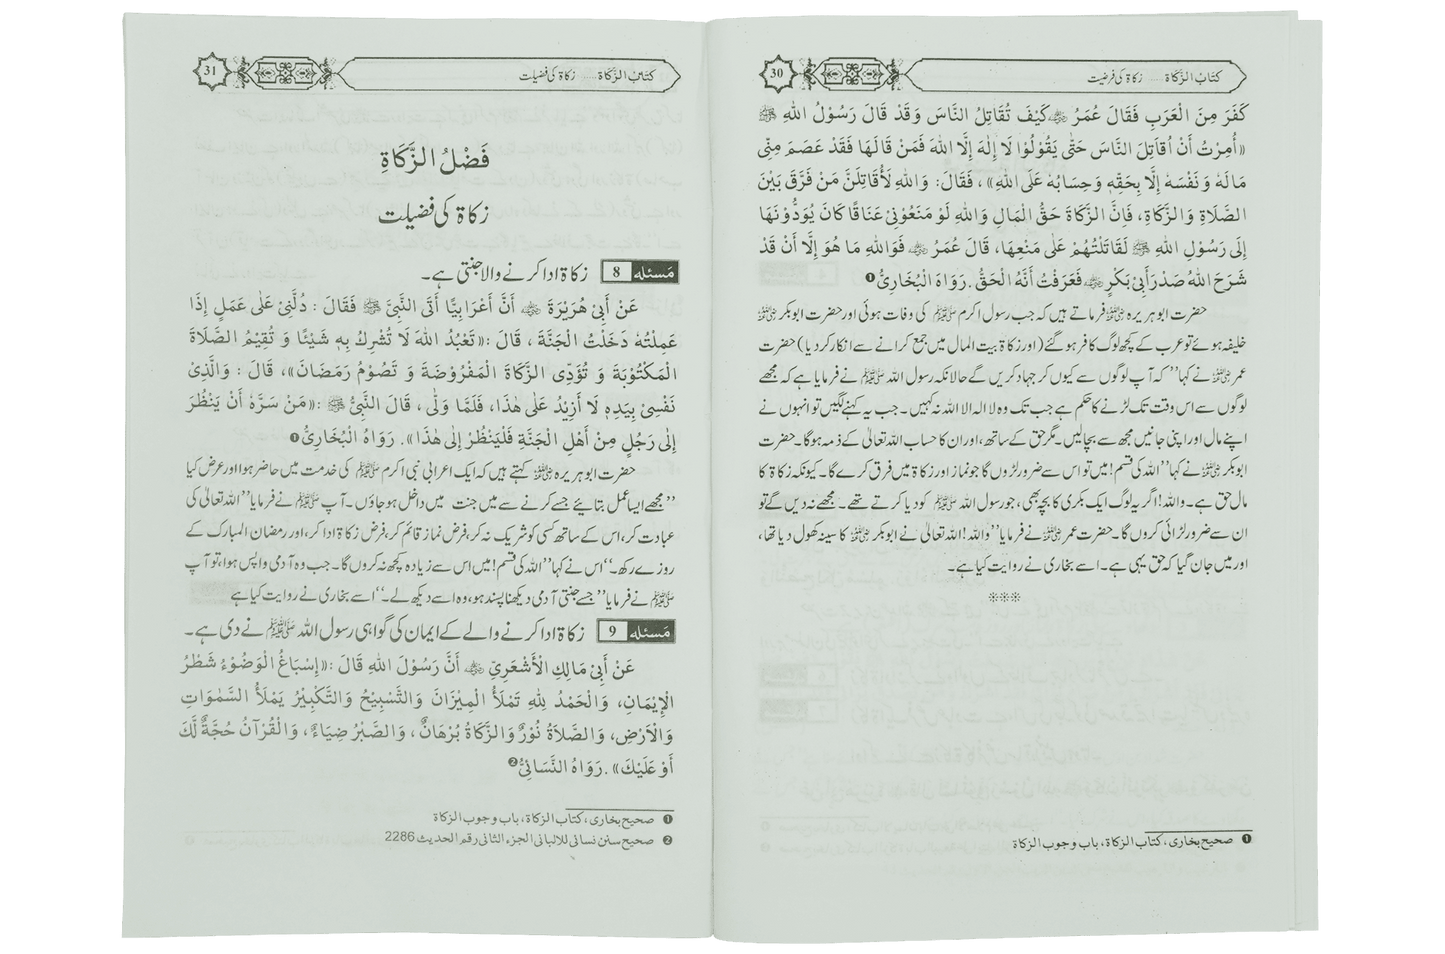 30
كتاب الزكاة ..... زکاۃ کی فرضیت
كَفَرَ مِنَ الْعَرَبِ فَقَالَ عُمَرُ ﷜ كَيْفَ تُقَاتِلُ النَّاسَ وَقَدْ قَالَ رَسُوْلُ اللهِ ﷺ
«أُمِرْتُ أَنْ أُقَاتِلَ النَّاسَ حَتّٰى يَقُوْلُوْا لَا إِلٰهَ إِلَّا اللهُ فَمَنْ قَالَهَا فَقَدْ عَصَمَ مِنِّى
مَالَهُ وَنَفْسَهُ إِلَّا بِحَقِّهِ وَحِسَابُهُ عَلَى اللهِ» ، فَقَالَ: وَاللهِ لَأُقَاتِلَنَّ مَنْ فَرَّقَ بَيْنَ
الصَّلَاةِ وَالزَّكَاةِ، فَإِنَّ الزَّكَاةَ حَقُّ الْمَالِ وَاللهِ لَوْ مَنَعُوْنِىْ عَنَاقًا كَانَ يُوَدُّوْنَهَا
إِلٰى رَسُوْلِ اللهِ ﷺ لَقَاتَلْتُهُمْ عَلٰى مَنْعِهَا، قَالَ عُمَرُ ﷜ فَوَاللهِ مَا هُوَ إِلَّا أَنْ قَدْ
شَرَحَ اللهُ صَدْرَ أَبِىْ بَكْرٍ ﷜ فَعَرَفْتُ أَنَّهُ الْحَقُّ. رَوَاهُ الْبُخَارِىُّ ❶
حضرت ابو ہریرہ ﷜ فرماتے ہیں کہ جب رسول اکرم ﷺ کی وفات ہوئی اور حضرت ابوبکر ﷜
خلیفہ ہوئے تو عرب کے کچھ لوگ کافر ہو گئے (اور زکاۃ بیت المال میں جمع کرانے سے انکار کر دیا) حضرت
عمر ﷜ نے کہا ’’کہ آپ لوگوں سے کیوں کر جہاد کریں گے حالانکہ رسول اللہ ﷺ نے فرمایا ہے کہ مجھے
لوگوں سے اس وقت تک لڑنے کا حکم ہے جب تک وہ لا الہ الا اللہ نہ کہیں۔ جب یہ کہنے لگیں تو انہوں نے
اپنے مال اور اپنی جانیں مجھ سے بچالیں۔ مگر حق کے ساتھ، اور ان کا حساب اللہ تعالیٰ کے ذمہ ہوگا۔ حضرت
ابوبکر ﷜ نے کہا ’’اللہ کی قسم! میں تو اس سے ضرور لڑوں گا جو نماز اور زکاۃ میں فرق کرے گا۔ کیونکہ زکاۃ کا
مال حق ہے۔ واللہ! اگر یہ لوگ ایک بکری کا بچہ بھی، جو رسول اللہ ﷺ کو دیا کرتے تھے۔ مجھے نہ دیں گے تو
ان سے ضرور لڑائی کروں گا۔ حضرت عمر ﷜ نے فرمایا ’’واللہ! اللہ تعالیٰ نے ابوبکر ﷜ کا سینہ کھول دیا تھا،
اور میں جان گیا کہ حق یہی ہے۔ اسے بخاری نے روایت کیا ہے۔
❶ صحيح بخارى، كتاب الزكاة، باب وجوب الزكاة
31
كتاب الزكاة ..... زکاۃ کی فضیلت
فَضْلُ الزَّكَاةِ
زکاۃ کی فضیلت
مَسئلہ 8 زکاۃ ادا کرنے والا جنتی ہے۔
عَنْ أَبِىْ هُرَيْرَةَ ﷜ أَنَّ أَعْرَابِيًّا أَتَى النَّبِىَّ ﷺ فَقَالَ : دُلَّنِىْ عَلٰى عَمَلٍ إِذَا
عَمِلْتُهُ دَخَلْتُ الْجَنَّةَ ، قَالَ :«تَعْبُدُ اللهَ لَا تُشْرِكُ بِهِ شَيْئًا وَ تُقِيْمُ الصَّلَاةَ
الْمَكْتُوْبَةَ وَ تُوَدِّى الزَّكَاةَ الْمَفْرُوْضَةَ وَ تَصُوْمُ رَمَضَانَ»، قَالَ : وَالَّذِىْ
نَفْسِىْ بِيَدِهِ لَا أَزِيْدُ عَلٰى هٰذَا، فَلَمَّا وَلّٰى ، قَالَ النَّبِىُّ ﷺ :«مَنْ سَرَّهُ أَنْ يَنْظُرَ
إِلٰى رَجُلٍ مِنْ أَهْلِ الْجَنَّةِ فَلْيَنْظُرْ إِلٰى هٰذَا». رَوَاهُ الْبُخَارِىُّ ❶
حضرت ابو ہریرہ ﷜ کہتے ہیں کہ ایک اعرابی نبی اکرم ﷺ کی خدمت میں حاضر ہوا اور عرض کیا
’’مجھے ایسا عمل بتائیے جسے کرنے سے میں جنت میں داخل ہو جاؤں۔ آپ ﷺ نے فرمایا ’’اللہ تعالیٰ کی
عبادت کر، اس کے ساتھ کسی کو شریک نہ کر، فرض نماز قائم کر، فرض زکاۃ ادا کر، اور رمضان المبارک کے
روزے رکھ۔‘‘ اس نے کہا ’’اللہ کی قسم! میں اس سے زیادہ کچھ نہ کروں گا۔ جب وہ آدمی واپس ہوا، تو آپ
ﷺ نے فرمایا ’’جسے جنتی آدمی دیکھنا پسند ہو، وہ اسے دیکھ لے۔‘‘ اسے بخاری نے روایت کیا ہے
مَسئلہ 9 زکاۃ ادا کرنے والے کے ایمان کی گواہی رسول اللہ ﷺ نے دی ہے۔
عَنْ أَبِىْ مَالِكِ الْأَشْعَرِىِّ ﷜ أَنَّ رَسُوْلَ اللهِ قَالَ :«إِسْبَاغُ الْوَضُوْءِ شَطْرُ
الْإِيْمَانِ، وَالْحَمْدُ لِلّٰهِ تَمْلَأُ الْمِيْزَانَ وَالتَّسْبِيْحُ وَالتَّكْبِيْرُ يَمْلَأُ السَّمٰوَاتِ
وَالْأَرْضِ، وَالصَّلَاةُ نُوْرٌ وَالزَّكَاةُ بُرْهَانٌ ، وَالصَّبْرُ ضِيَاءٌ، وَالْقُرْآنُ حُجَّةٌ لَّكَ
أَوْ عَلَيْكَ» . رَوَاهُ النَّسَائِىُّ ❷
❶ صحيح بخارى، كتاب الزكاة، باب وجوب الزكاة
❷ صحيح سنن نسائى للالبانى الجزء الثانى رقم الحديث 2286